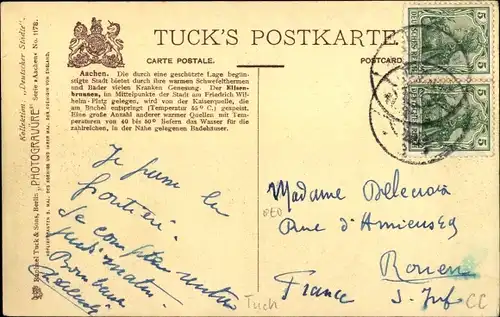 TUCK'S POSTKARTE
CARTE POSTALE.
POSTCARD
Aachen. Die durch eine geschützte Lage begün-
stigte Stadt bietet durch ihre warmen Schwefelthermen
und Bäder vielen Kranken Genesung. Der Elisen-
brunnen, in Mittelpunkte der Stadt am Friedrich Wil-
helm-Platz gelegen, wird von der Kaiserquelle, die
am Büchel entspringt (Temperatur 55° C.) gespeist.
Eine große Anzahl anderer warmer Quellen mit Tem-
peraturen von 40 bis 50° liefern das Wasser für die
zahlreichen, in der Nähe gelegenen Badehäuser.
Kollektion: „Deutscher Städte".
"PHOTOGRAVÜRE" Serie »Aachen« No. 1176.
Raphael Tuck & Sons, Berlin
5
5
5
5
Je passe la
frontière.
Je compte
Madame Delecroix
Rue d'Amiens
Rouen
S. Inf
France
Tuck
CC